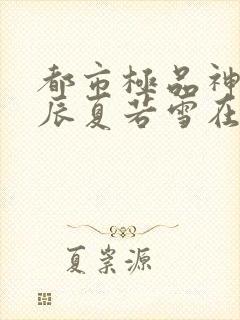 都市極品神
辰夏若雪在
夏崇源